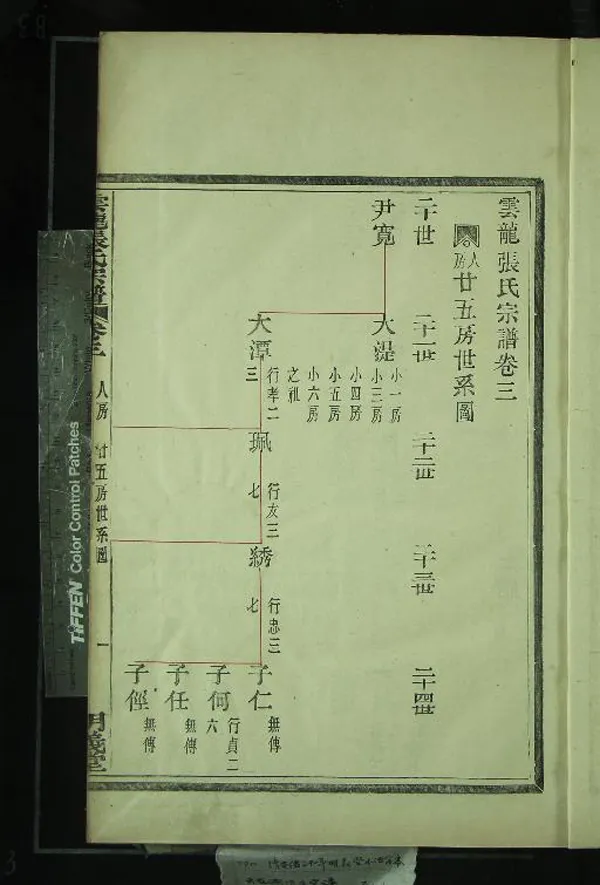 雲龍張氏宗譜卷三
人房
廿五房世系圖
二十世
二十一世
二十二世
二十三世
二十四世
尹寬
大湜
小一房
小三房
小四房
小五房
小六房
之祖
大潭
行孝二
三
珮
行友三
七
綉
行忠三
七
子仁
無傳
子何
行貞二
六
子任
無傳
子俓
無傳
雲龍張氏宗譜
卷之三
人房
廿五房世系圖
一
明義堂
TIFFEN Color Control Patches